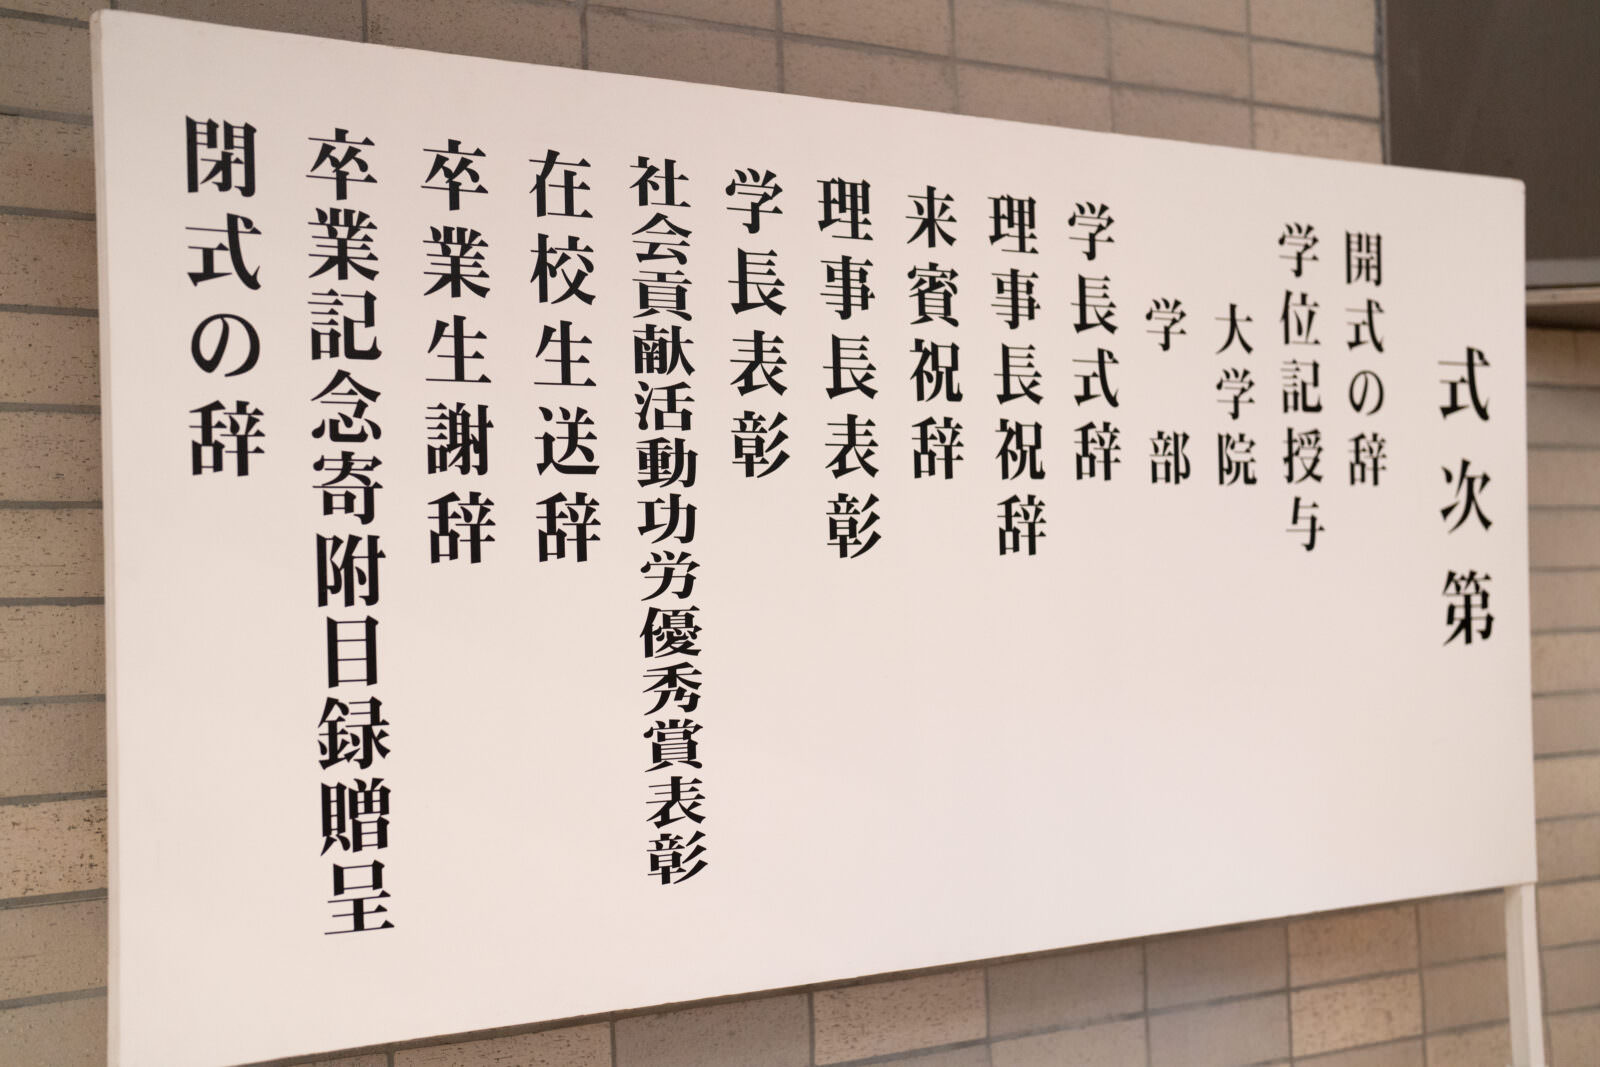 式次第
開式の辞
学位記授与
大学院
学部
学長式辞
理事長祝辞
来賓祝辞
理事長表彰
学長表彰
社会貢献活動功労優秀賞表彰
在校生送辞
卒業生謝辞
卒業記念寄附目録贈呈
閉式の辞